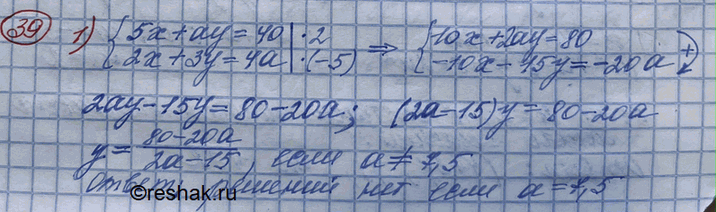 39 1) { 5x + ay = 40 | · 2 ⇒ { 10x + 2ay = 80
{ 2x + 3y = 4a | · (-5) { -10x - 15y = -20a +
2ay - 15y = 80 - 20a; (2a - 15)y = 80 - 20a
y = (80 - 20a)/(2a - 15), если a ≠ 7,5
Ответ: решений нет если a = 7,5
©reshak.ru